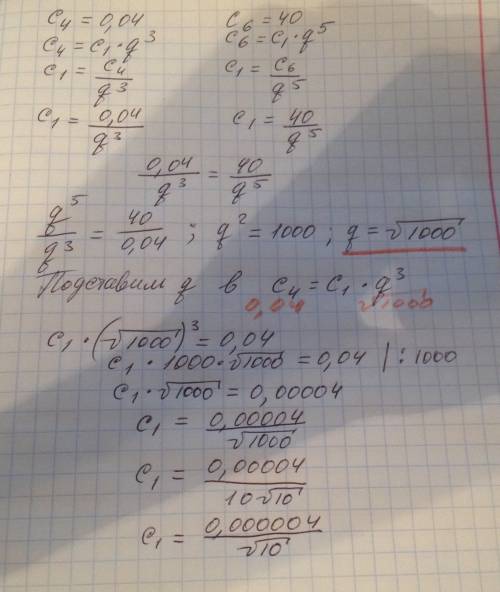 c₄ = 0,04    c₆ = 40
c₄ = c₁ · q³    c₆ = c₁ · q⁵
c₁ = c₄/q³    c₁ = c₆/q⁵
c₁ = 0,04/q³    c₁ = 40/q⁵
0,04/q³ = 40/q⁵
q⁵/q³ = 40/0,04 ; q² = 1000 ; q = √1000
Подставим q в c₄ = c₁ · q³
0,04    √1000
c₁ · (√1000)³ = 0,04
c₁ · 1000 · √1000 = 0,04 | : 1000
c₁ · √1000 = 0,00004
c₁ = 0,00004/√1000
c₁ = 0,00004/10√10
c₁ = 0,000004/√10